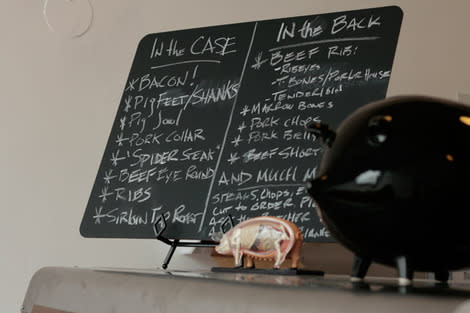 In the CASE
* BACON!
* Pig FEET/SHANKS
* Pig Jowl
* PORK COLLAR
* "SPIDER STEAK"
* BEEF EYE ROUND
* RIBS
* SIRLOIN TIP ROAST
In the BACK
* BEEF RIB:
- RIBEYES
- T-BONES/PORTERHOUSE
- TENDERLOIN
* MARROW BONES
* PORK CHOPS
* PORK BELLY
* BEEF SHORT
AND MUCH M
STEAKS, CHOPS, E
CUT TO ORDER